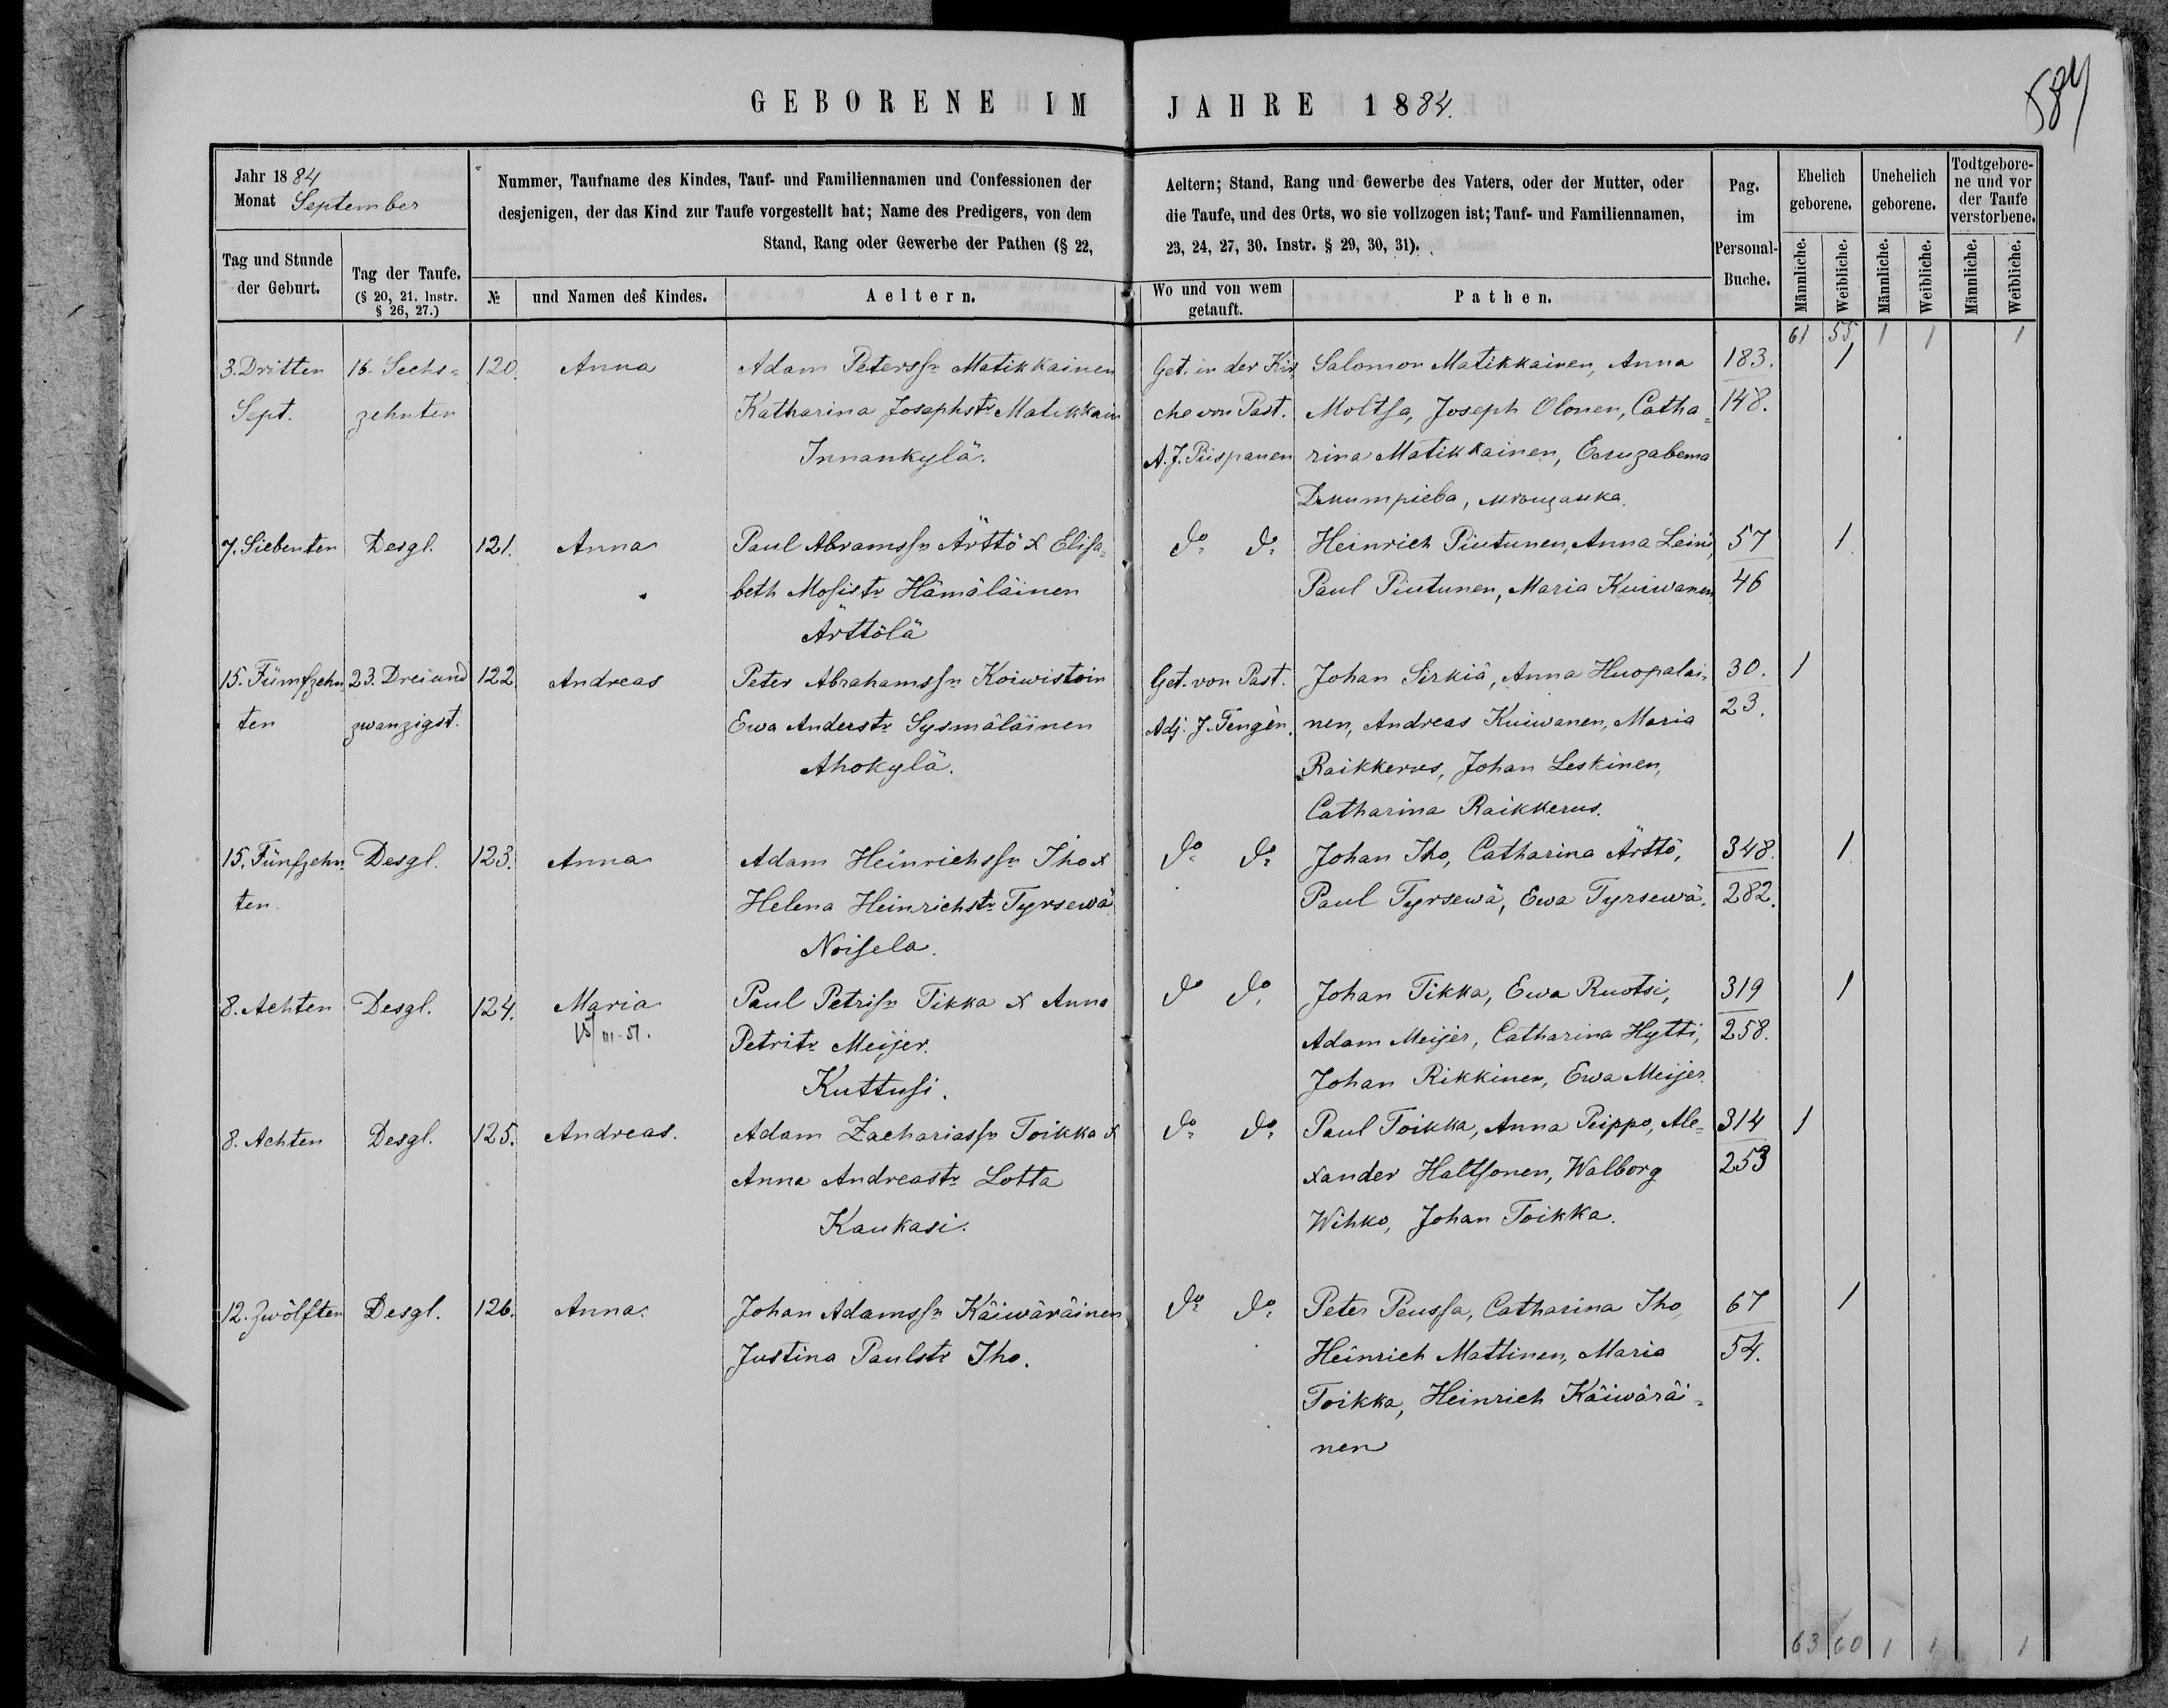 584
GEBORENE IM JAHRE 1884.
Jahr 1884
Monat September
Tag und Stunde der Geburt.
Tag der Taufe. (§ 20, 21. Instr. § 26, 27.)
Nummer, Taufname des Kindes, Tauf- und Familiennamen und Confessionen der Aeltern; Stand, Rang und Gewerbe des Vaters, oder der Mutter, oder
desjenigen, der das Kind zur Taufe vorgestellt hat; Name des Predigers, von dem die Taufe, und des Orts, wo sie vollzogen ist; Tauf- und Familiennamen,
Stand, Rang oder Gewerbe der Pathen (§ 22, 23, 24, 27, 30. Instr. § 29, 30, 31).
№ und Namen des Kindes.
Aeltern.
Wo und von wem getauft.
Pathen.
Pag. im Personal-Buche.
Ehelich geborene.
Unehelich geborene.
Todtgeborene und vor der Taufe verstorbene.
Männliche. Weibliche. Männliche. Weibliche. Männliche. Weibliche.
61 55 1 1 1
3. Dritten 16. Sechs= 120. Anna Adam Peterssn Matikkainen Get. in der Kir, Salomon Matikkainen, Anna 183. 1
Sept. zehnten Katharina Josephstr Matikkain che von Past. Moltsa, Joseph Olonen, Catha= 148.
Innankylä. A. J. Piispanen rina Matikkainen,
7. Siebenten Desgl. 121. Anna Paul Abramssn Ärttö x Elisa= do do Heinrich Piutunen, Anna Leini, 57 1
beth Mosistr Hämäläinen Paul Piutunen, Maria Kuiwanen 46
Ärttölä
15. Fünfzehn 23. Drei und 122 Andreas Peter Abrahamssn Koiwistoin Get. von Past. Johan Sirkiä, Anna Huopalai= 30. 1
ten zwanzigst. Ewa Anderstr Sysmäläinen Adj. J. Tengèn. nen, Andreas Kuiwanen, Maria 23.
Ahokylä. Raikkerus, Johan Leskinen,
Catharina Raikkerus.
15. Fünfzehn= Desgl. 123. Anna Adam Heinrichssn Iho x do do Johan Iho, Catharina Ärttö, 348. 1
ten. Helena Heinrichstr Tyrsewä. Paul Tyrsewä, Ewa Tyrsewä. 282.
Noisela.
8. Achten Desgl. 124. Maria Paul Petrisn Tikka x Anna do do Johan Tikka, Ewa Ruotsi, 319 1
15/III-51. Petritr Meijer. Adam Meijer, Catharina Hytti, 258.
Kuttusi. Johan Rikkinen, Ewa Meijer.
8. Achten Desgl. 125. Andreas. Adam Zachariassn Toikka x do do Paul Toikka, Anna Peippo, Ale= 314 1
Anna Andreastr Lotta xander Haltsonen, Walborg 253
Kaukasi. Wihko, Johan Toikka.
12. Zwölften Desgl. 126. Anna. Johan Adamssn Käiwäräinen do do Peter Peussa, Catharina Iho, 67 1
Justina Paulstr Iho. Heinrich Mattinen, Maria 54.
Toikka, Heinrich Käiwäräi=
nen
63 60 1 1 1